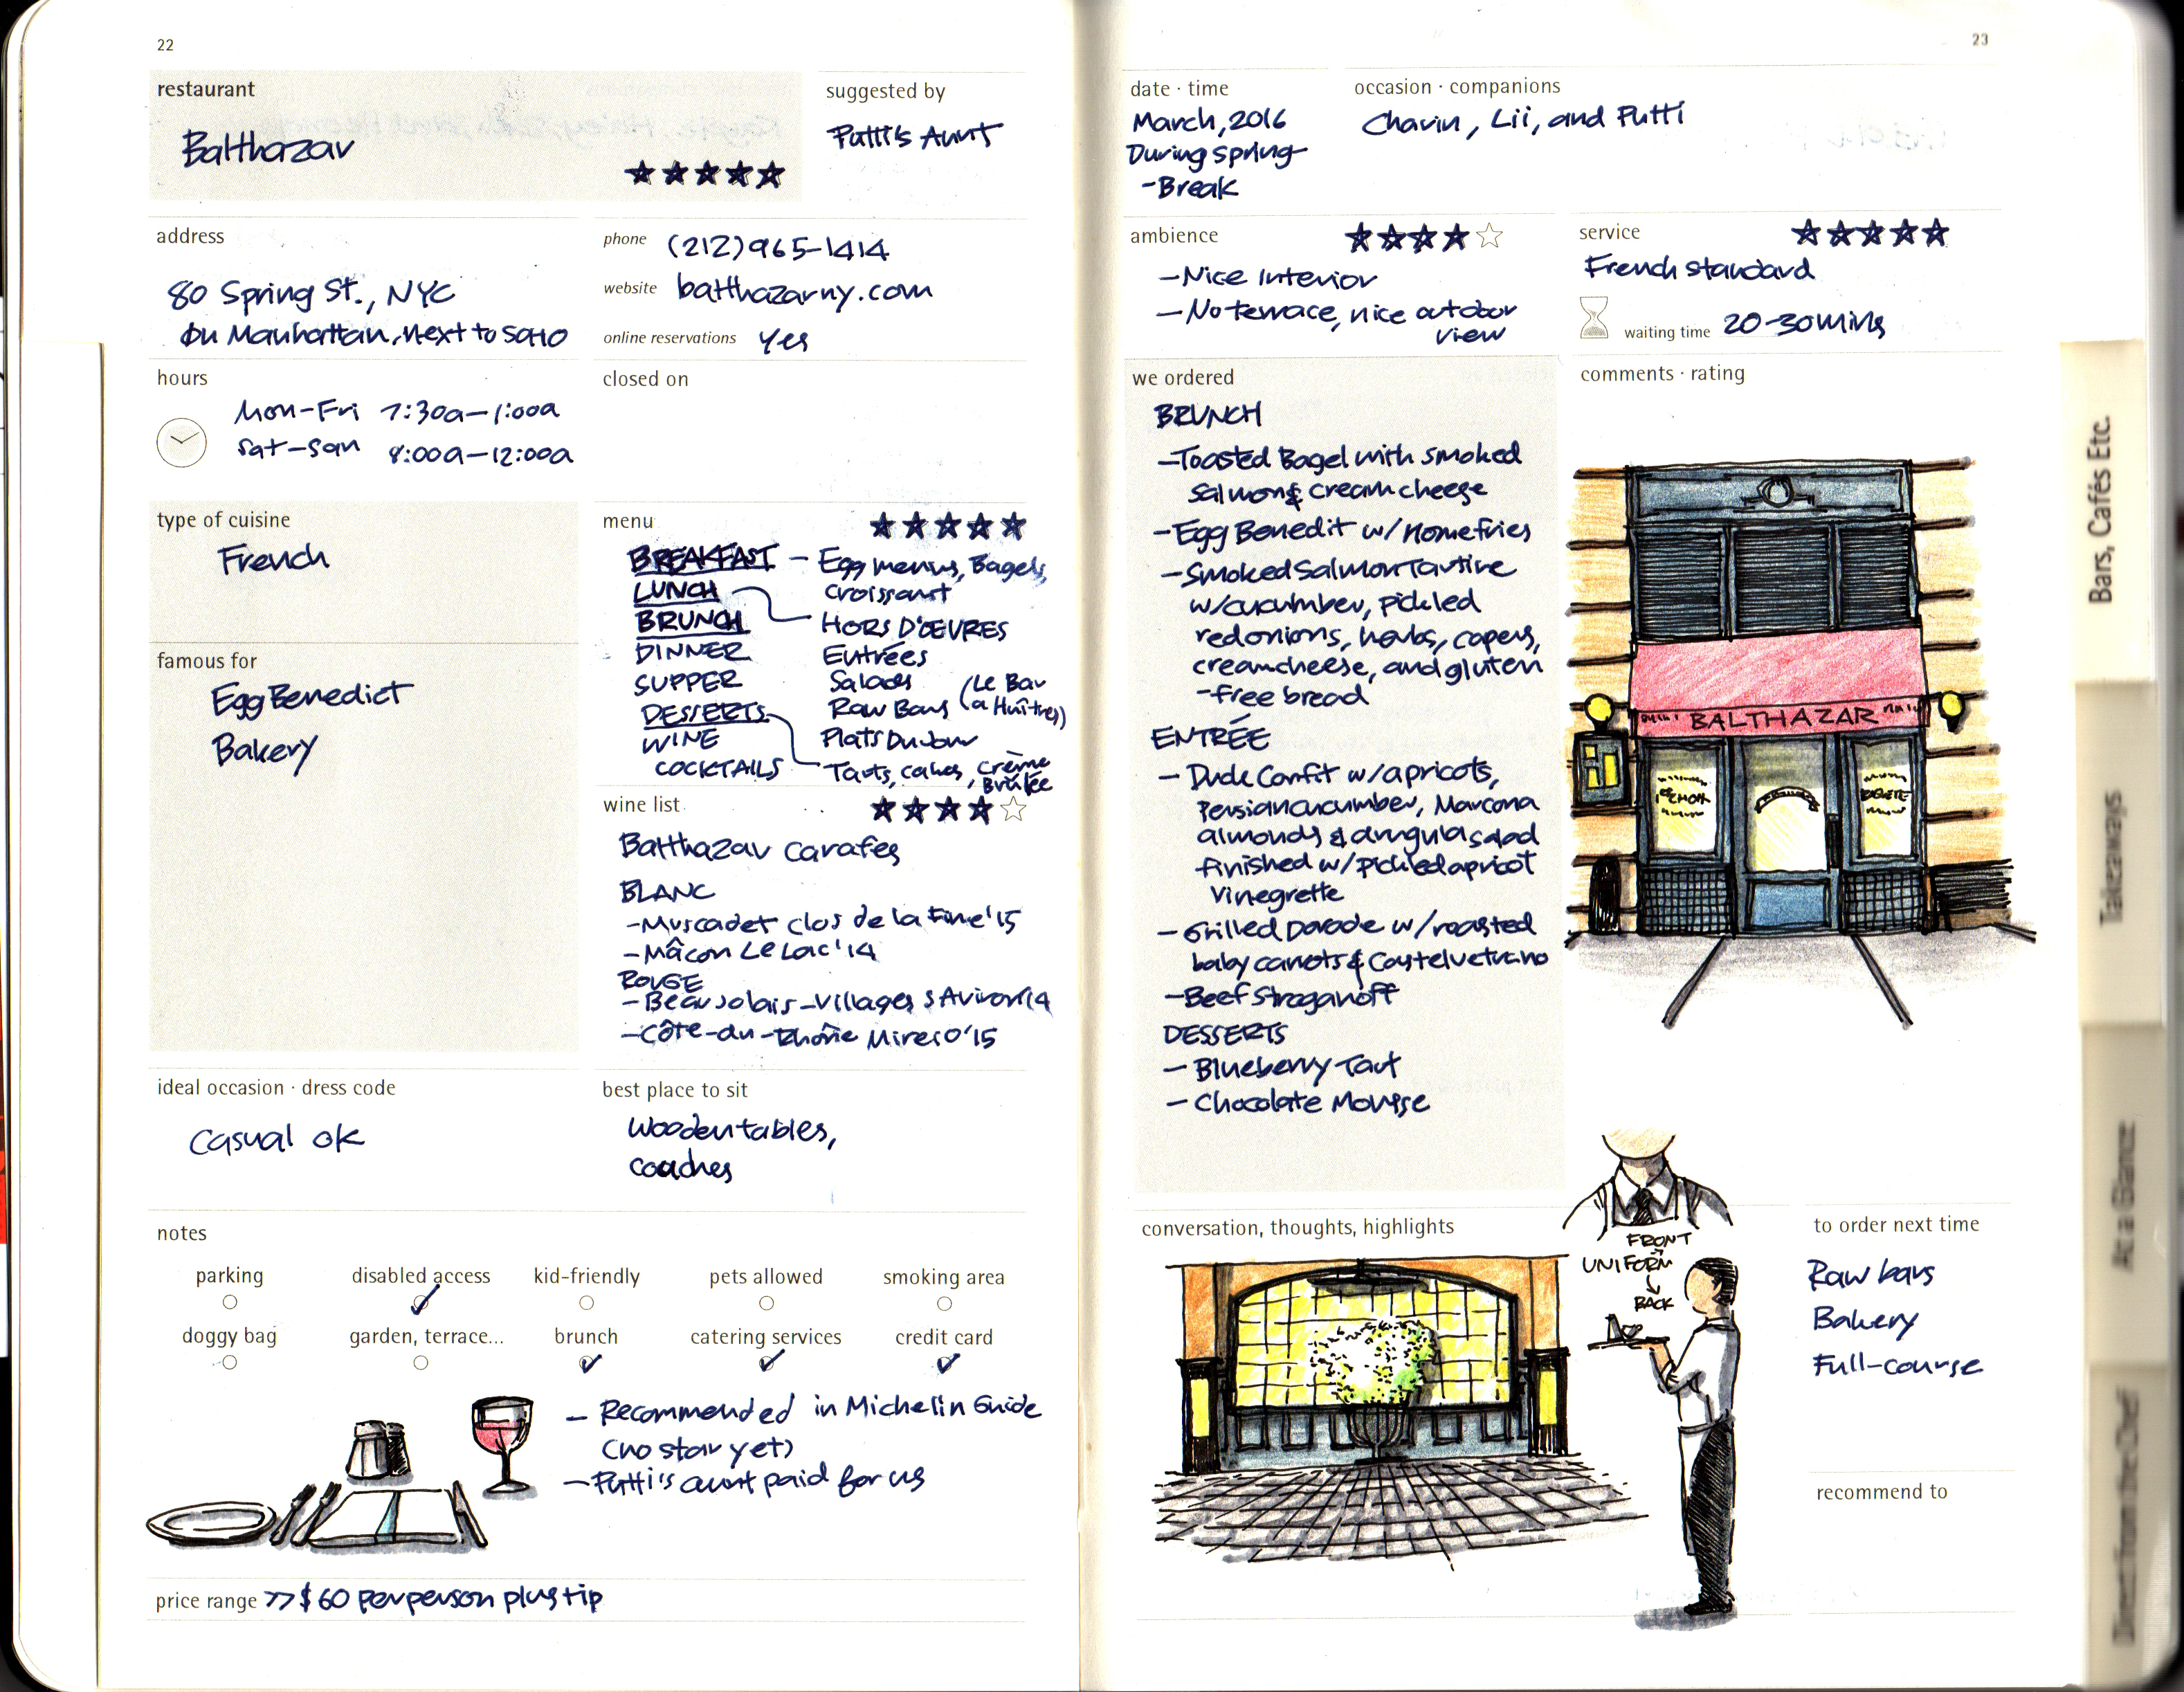 22
restaurant
Balthazar
suggested by
Putti's Aunt
address
80 Spring St., NYC
On Manhattan, next to SOHO
phone (212) 965-1414
website balthazarny.com
online reservations Yes
hours
Mon-Fri 7:30a-1:00a
Sat-Sun 8:00a-12:00a
closed on
type of cuisine
French
famous for
Egg Benedict
Bakery
menu
BREAKFAST - Egg menus, Bagels,
Croissant
LUNCH
HORS D'OEUVRES
BRUNCH
Entrées
DINNER
Salads
SUPPER
Raw Bars (Le Bar
a Huîtres)
DESSERTS
Plats Du Jour
WINE
Tarts, cakes, Crème
Brûlée
COCKTAILS
wine list
Balthazar Carafes
BLANC
-Muscadet Clos de la Fine '15
-Mâcon Le Lac '14
ROUGE
-Beaujolais-Villages '14
-Côte-du-Rhône Mireio '15
ideal occasion · dress code
Casual ok
best place to sit
Wooden tables,
coaches
notes
parking
disabled access
kid-friendly
pets allowed
smoking area
doggy bag
garden, terrace...
brunch
catering services
credit card
- Recommended in Michelin Guide
(no star yet)
- Putti's aunt paid for us
price range >>$60 per person plus tip
23
date · time
March, 2016
During spring
-Break
occasion · companions
Chavin, Lii, and Putti
ambience
-Nice Interior
-No terrace, nice outdoor
view
service
French standard
waiting time 20-30 mins
we ordered
BRUNCH
-Toasted Bagel with smoked
salmon & cream cheese
-Egg Benedit w/ Homefries
-Smoked Salmon Tartine
w/cucumber, pickled
red onions, herbs, capers,
creamcheese, and gluten
-free bread
ENTRÉE
- Duck Confit w/apricots,
Persian cucumber, Marcona
almonds & arugula salad
finished w/ pickled apricot
Vinegrette
- Grilled Dorade w/roasted
baby carrots & Castelvetrano
-Beef Stroganoff
DESSERTS
- Blueberry Tart
- Chocolate Mousse
comments · rating
BALTHAZAR
conversation, thoughts, highlights
FRONT
UNIFORM
BACK
to order next time
Raw bars
Bakery
Full-course
recommend to
Bars, Cafés Etc.
Takeaways
At a Glance
Direct from the Chef